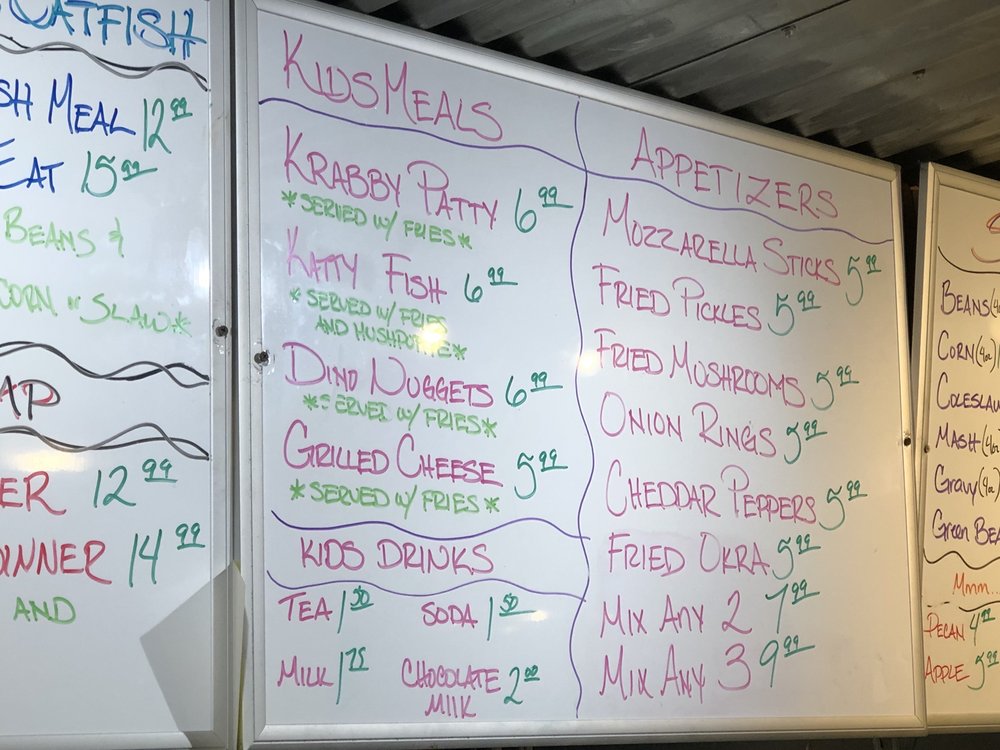 CATFISH
MEAL 12.99
EAT 15.99
BEANS &
CORN or SLAW*
ER 12.99
DINNER 14.99
AND
KIDS MEALS
KRABBY PATTY 6.99
*SERVED W/ FRIES*
KATTY FISH 6.99
*SERVED W/ FRIES
AND HUSHPUPPIE*
DINO NUGGETS 6.99
*SERVED W/ FRIES*
GRILLED CHEESE 5.99
*SERVED W/ FRIES*
KIDS DRINKS
TEA 1.50 SODA 1.50
MILK 1.75 CHOCOLATE MILK 2.00
APPETIZERS
MOZZARELLA STICKS 5.99
FRIED PICKLES 5.99
FRIED MUSHROOMS 5.99
ONION RINGS 5.99
CHEDDAR PEPPERS 5.99
FRIED OKRA 5.99
MIX ANY 2 7.99
MIX ANY 3 9.99
BEANS (4oz
CORN (4oz)
COLESLAW
MASH (4oz
GRAVY (4oz)
GREEN BEA
Mmm...
PECAN 4.99
APPLE 3.99